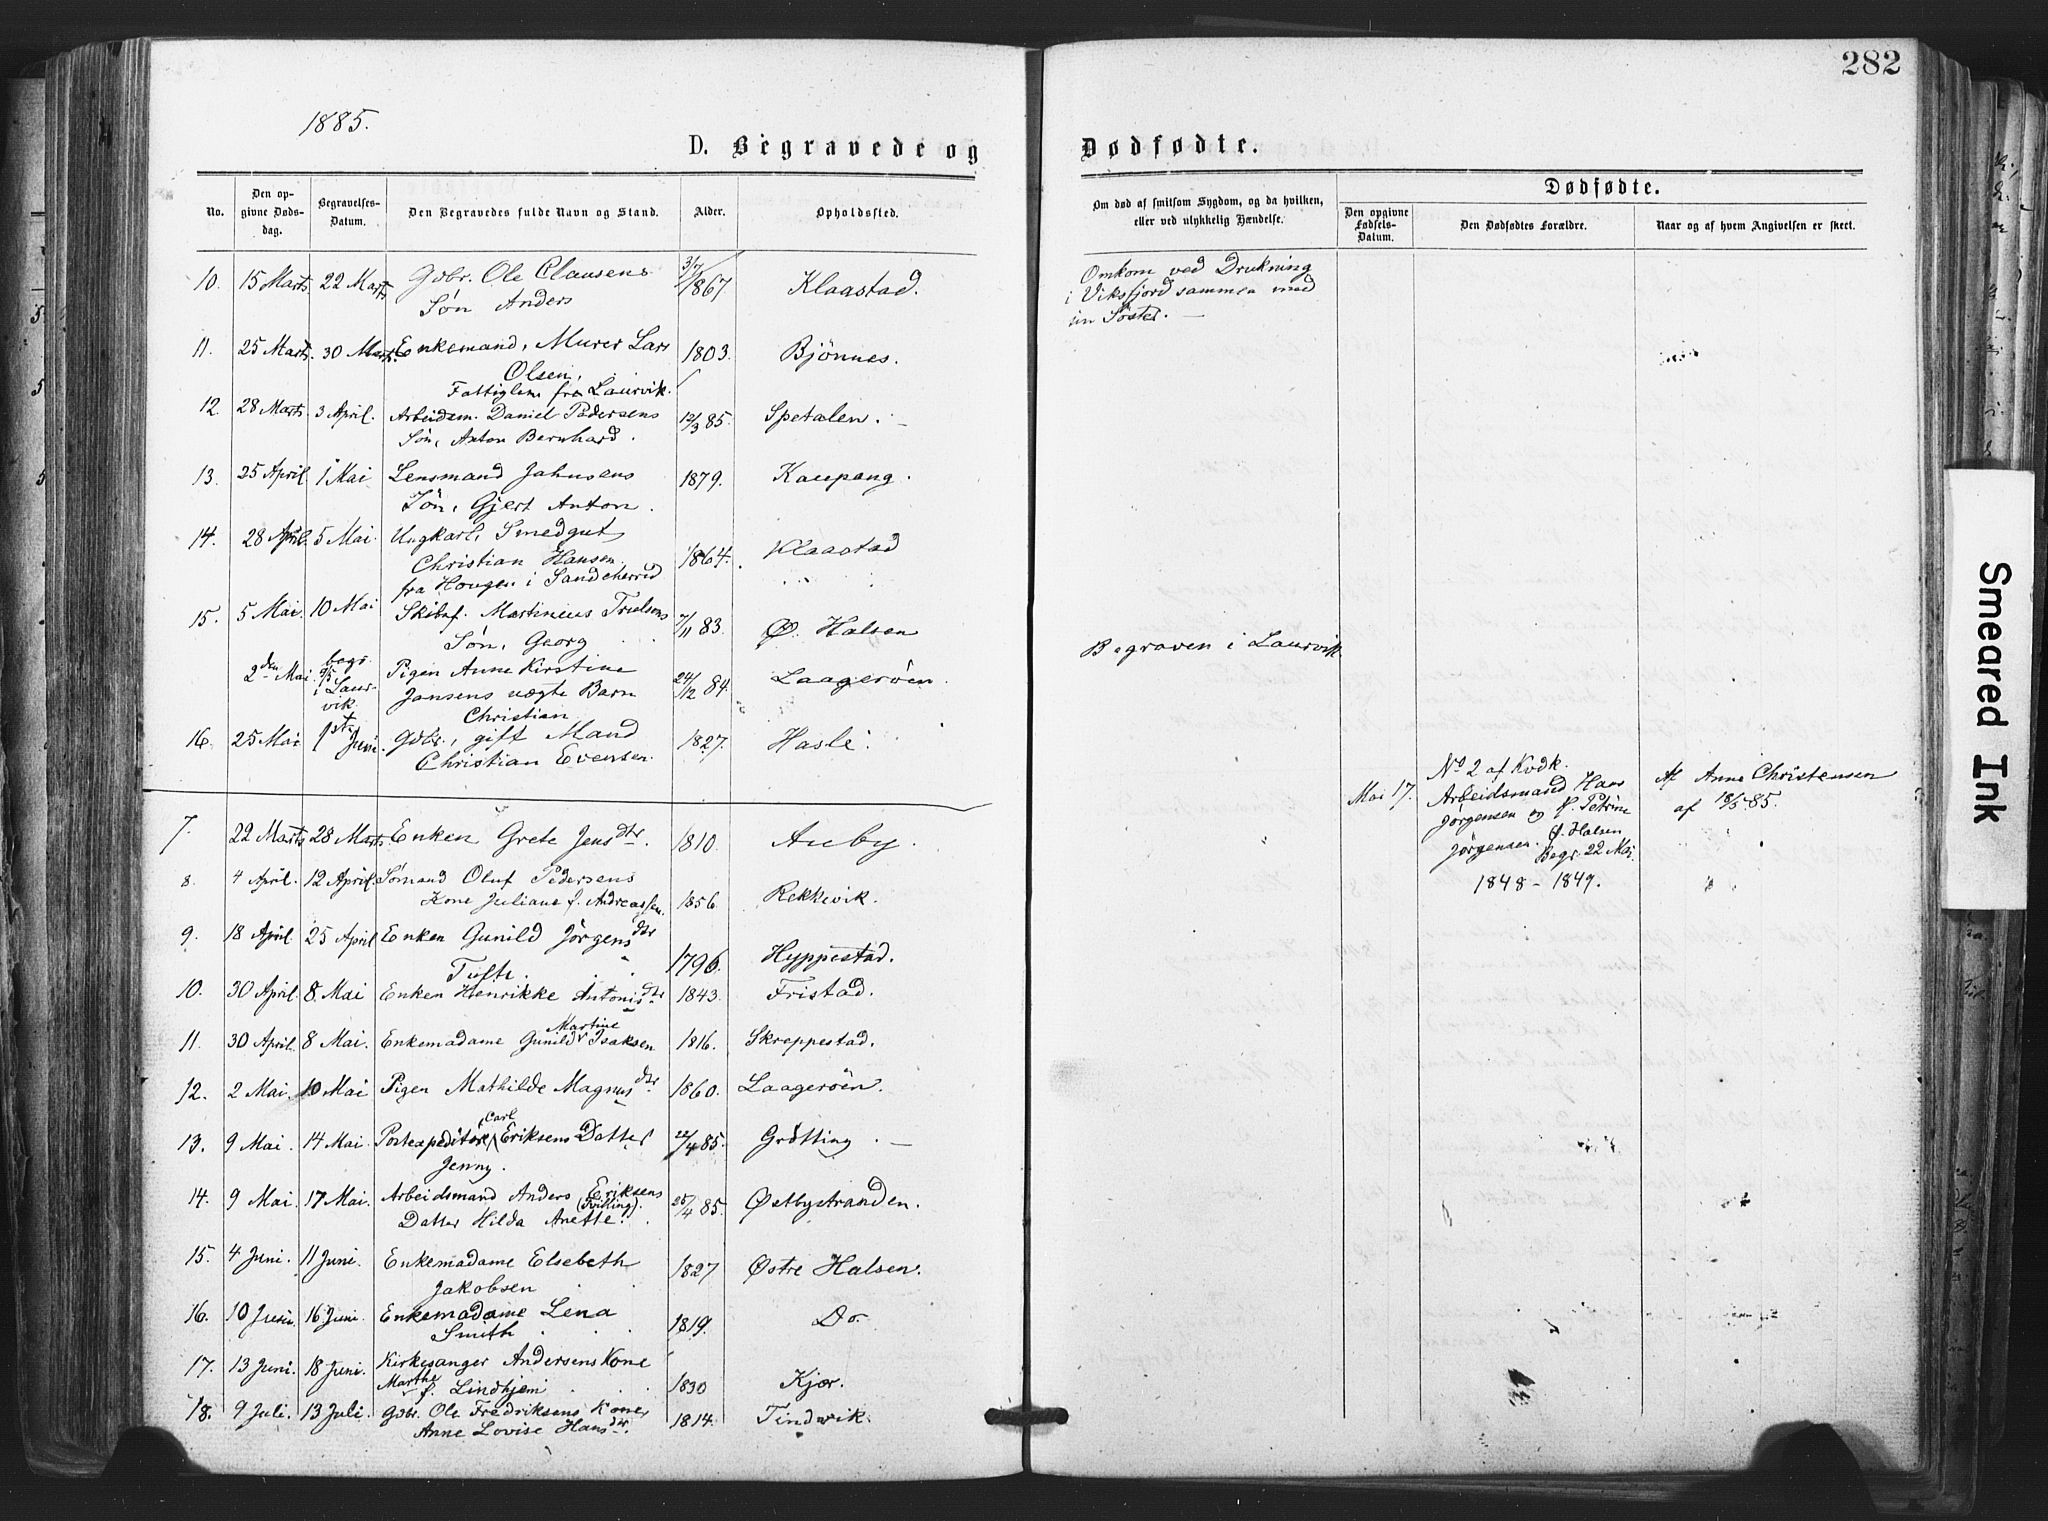 282
1885.
D. Begravede og Dødfødte.
No.
Den opgivne Dødsdag.
Begravelses-Datum.
Den Begravedes fulde Navn og Stand.
Alder.
Opholdssted.
Om død af smitsom Sygdom, og da hvilken, eller ved ulykkelig Hændelse.
Dødfødte.
Den opgivne Fødsels-Datum.
Den Dødfødtes Forældre.
Naar og af hvem Angivelsen er skeet.
10. 15 Marts 22 Marts Gdbr. Ole Clausens 3/7 1867. Klaastad. Omkom ved Drukning
Søn Anders i Viksfjord sammen med
sin Søster. —
11. 25 Marts. 30 Marts. Enkemand, Murer Lars 1803. Bjönnes.
Olsen,
Fattiglem fra Laurvik.
12. 28 Marts 3 April. Arbeidsm. Daniel Pedersens 12/3 85. Spetalen. —
Søn, Anton Bernhard.
13. 25 April 1 Mai Lensmand Jahnsens 1879. Kaupang.
Søn, Gjert Anton.
14. 28 April. 5 Mai. Ungkarl, Smedgut
Christian Hansen 1864. Klaastad
fra Hougen i Sandeherred
15. 5 Mai. 10 Mai Skibsf. Martinius Trulsens 7/11 83. Ø. Halsen
Søn, Georg
2den Mai. begr. 9/5 i Laurvik. Pigen Anne Kirstine 24/12 84. Laagerøen. Begraven i Laurvik.
Jansens uægte Barn
Christian
16. 25 Mai 1st Juni. Gdbr., gift Mand 1827. Hasle.
Christian Evensen.
Mai 17. No 2 af Kvdk. Af Anne Christensen
Arbeidsmand Hans af 18/5 85.
Jørgensen og Petrine
Ø. Halsen
Jørgensen. Begr. 22 Mai.
1848 - 1849. "
7. 22 Marts 28 Marts. Enken Grete Jensdtr. 1810. Auby.
8. 4 April. 12 April. Sømand Oluf Pedersens
Kone Juliane f. Andreassen. 1856. Rekkevik.
9. 18 April 25 April Enken Gunild Jørgensdtr
Tufte. 1796. Hyppestad.
10. 30 April. 8 Mai Enken Henrikke Antonisdtr 1843. Fristad.
11. 30 April. 8 Mai. Enkemadame Gunild Martine Isaksen 1816. Skreppestad.
12. 2 Mai. 10 Mai Pigen Mathilde Magnusdtr 1860. Laagerøen.
13. 9 Mai. 14 Mai. Postexpeditør Carl Eriksens Datter 22/4 85. Grøtting. —
Jenny.
14. 9 Mai. 17 Mai. Arbeidsmand Anders Eriksens 25/4 85. Østbystranden.
Datter Hilda Anette. (Tvilling).
15. 4 Juni. 11 Juni. Enkemadame Elsebeth 1827 Østre Halsen.
Jakobsen
16. 10 Juni 16 Juni. Enkemadame Lena 1819. Do.
Smith
17. 13 Juni. 18 Juni. Kirkesanger Andersens Kone
Marthe f. Lindhjem 1830 Kjær.
18. 9 Juli. 13 Juli. Gdbr. Ole Fredriksens Kone 1814. Tindvik.
Anne Lovise Hansdtr.
Smeared Ink